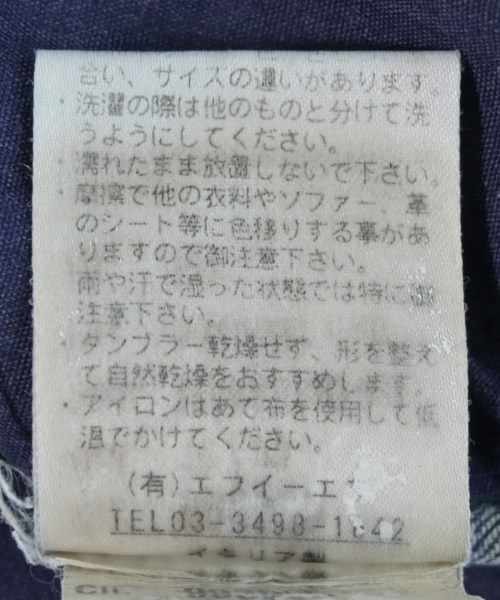 合い、サイズの違いがあります。
・洗濯の際は他のものと分けて洗
うようにしてください。
・濡れたまま放置しないで下さい。
・摩擦で他の衣料やソファー、革
のシート等に色移りする事があ
りますので御注意下さい。
雨や汗で湿った状態では特に御
注意下さい。
・タンブラー乾燥せず、形を整え
て自然乾燥をおすすめします。
・アイロンはあて布を使用して低
温でかけてください。
(有)エフイーエ
TEL03-3498-1642
イタリア製